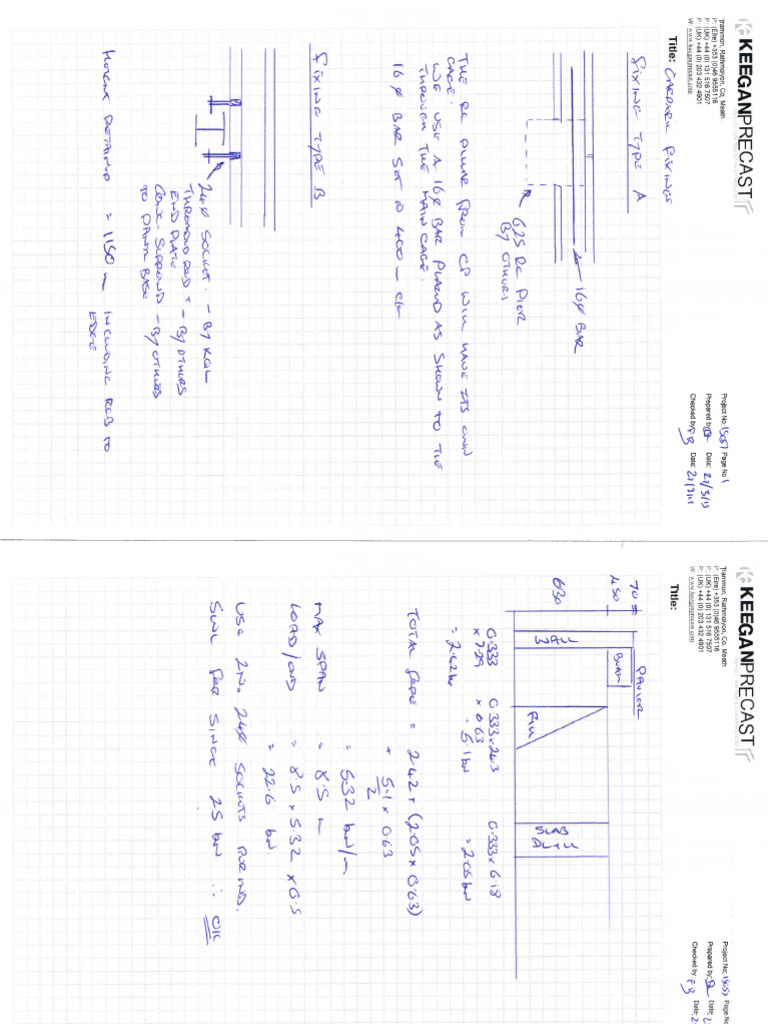 KEEGANPRECAST
Trammon, Rathmolyon, Co. Meath
P: (Eire) +353 (0)46 9555116
P: (UK) +44 (0) 131 516 7507
P: (UK) +44 (0) 203 432 4901
W: www.keeganprecast.com
Project No: Page No 1
Prepared by: Date: 27/3/15
Checked by: PB Date:
Title: FIXINGS
FIXING TYPE A
16φ BAR
625 RC PIER
BY OTHERS
THE RC PIER FROM CP WILL HAVE ITS OWN
CAGE.
WE USE A 16φ BAR PLACED AS SHOWN TO TIE
THROUGH THE MAIN CAGE.
16φ BAR SET @ 400
FIXING TYPE B
24φ SOCKET. - BY KQL
THREADED ROD + - BY OTHERS
END PLATE
CONC SURROUND - BY OTHERS
TO
HEIGHT RETAINED = 1150 INCLUDING TO
EDGE
KEEGANPRECAST
Trammon, Rathmolyon, Co. Meath
P: (Eire) +353 (0)46 9555116
P: (UK) +44 (0) 131 516 7507
P: (UK) +44 (0) 203 432 4901
W: www.keeganprecast.com
Project No: Page No
Prepared by: Date:
Checked by: PB Date:
Title:
70
450
630
WALL
BEAM
PAVIOR
FILL
SLAB
0.333
= 2.42 kN
0.333 x 24.3
x 0.63
= 5.1 kN
0.333 x 6.18
= 2.05 kN
TOTAL = 2.42 + (2.05 x 0.63)
+ 5.1 x 0.63
2
= 5.32 kN/m
MAX SPAN = 8.5 m
LOAD/END = 8.5 x 5.32 x 0.5
= 22.6 kN
USE 2No. 24φ SOCKETS PER END.
SWL PER SINGLE 25 kN ∴ OK